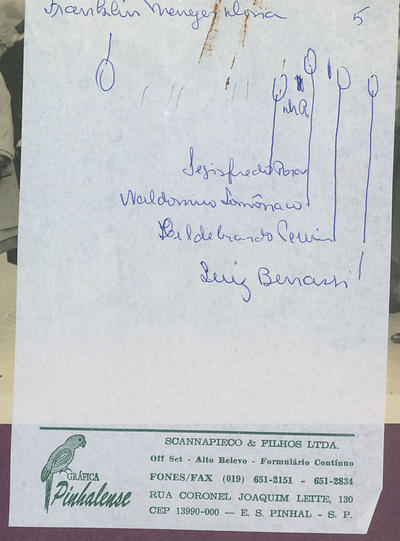 Franklin Menezes Doria 5
nhá.
Segisfredo Rosa
Waldomiro Lomônaco
Hildebrando Pereira
Luiz Benassi
SCANNAPIECO & FILHOS LTDA.
Off Set - Alto Relevo - Formulário Contínuo
GRÁFICA
Pinhalense
FONES/FAX (019) 651-2151 - 651-2834
RUA CORONEL JOAQUIM LEITE, 130
CEP 13990-000 — E. S. PINHAL - S. P.